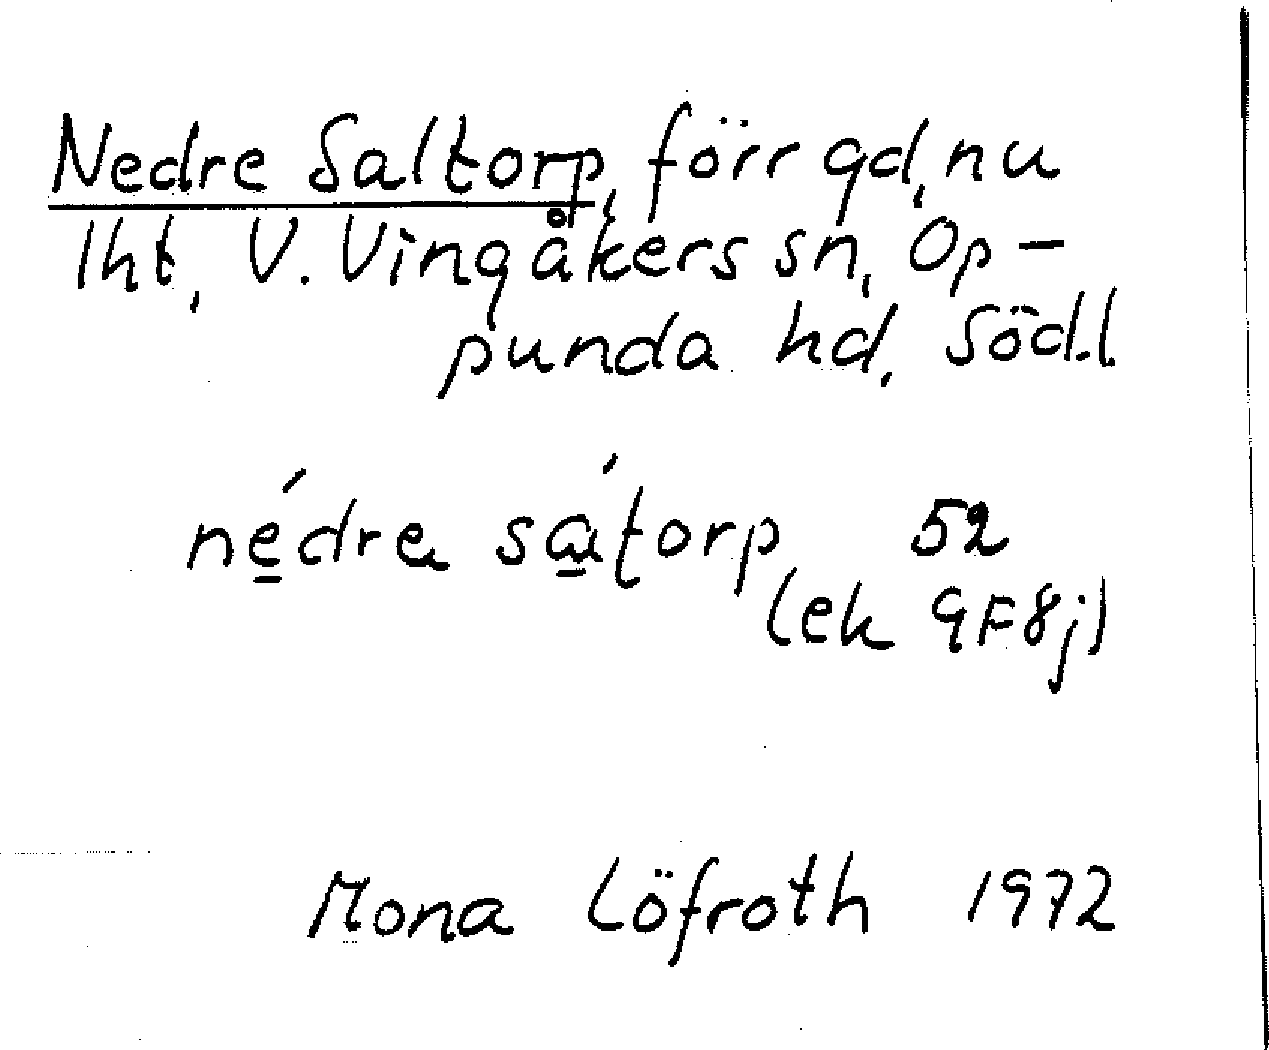 Nedre Saltorp, förr gd, nu
lht, V. Vingåkers sn, Op-
punda hd, Södl.
nédre sátorp 52
(ek 9F8j)
Mona Löfroth 1972